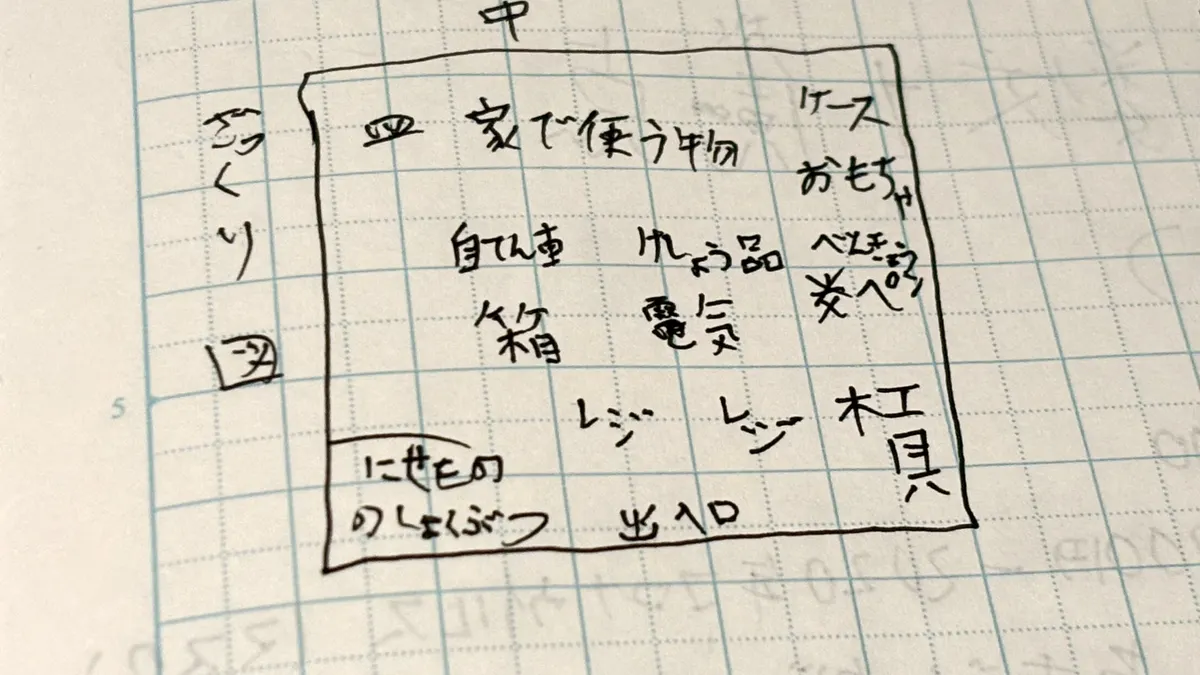 中
ざっくり図
皿 家で使う物 ケース
おもちゃ
自てん車 けしょう品 べんきょう
箱 電気 ペン
レジ レジ 木工具
にせもの
のしょくぶつ 出入口
5